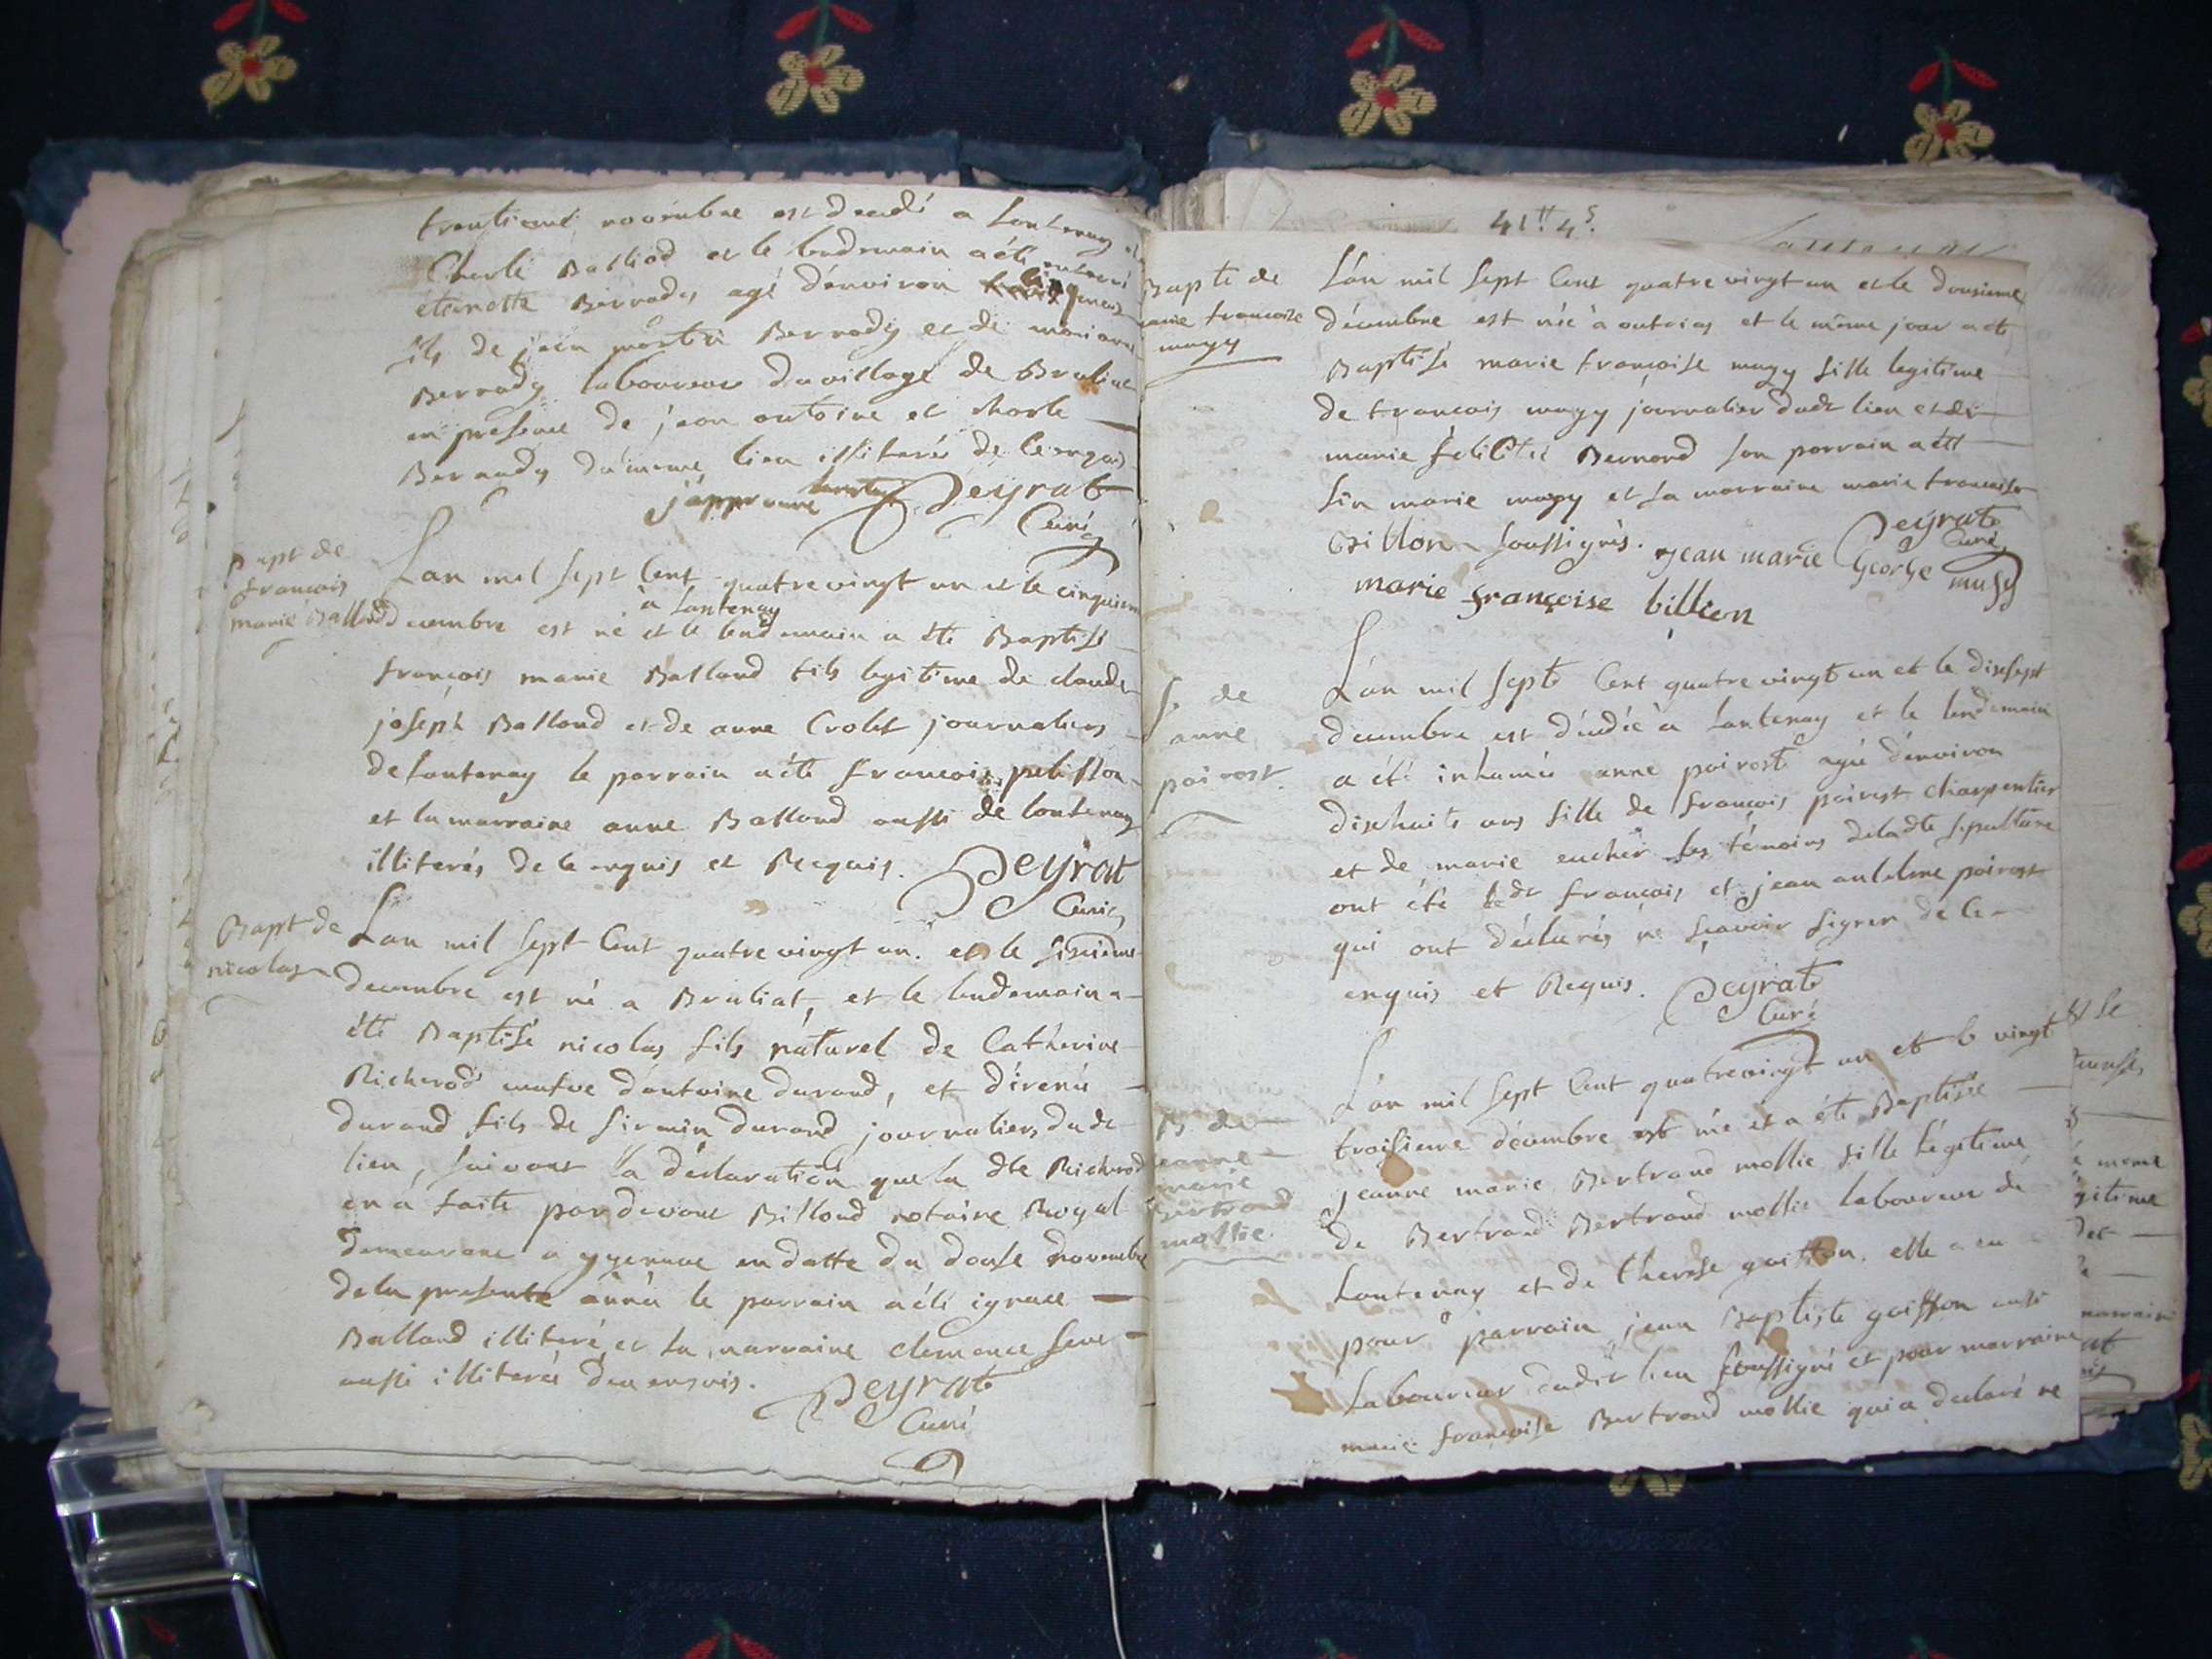 trentieme novembre est decedé a Lantenay
Charle Balliod et le lendemain a été enterré
etiennette Berrody agé d'environ
fils de jean Berrody et de
Berrody laboureur du village de
en presence de jean antoine et charle
Beraudy du meme lieu illiterés de ce enquis
j'approuve Peyrat
Curé
Bapt de
francois
marie Balland
Lan mil sept Cent quatre vingt un et le cinquieme
a Lantenay
decembre est né et le lendemain a été Baptisé
françois marie Balland fils legitime de claude
joseph Balland et de anne Crolet journaliers
de Lantenay le parrain a été francois pelisson
et la marraine anne Balland aussi de lantenay
illiterés de ce enquis et Requis. Peyrat
Curé
Bapt de
nicolas
Lan mil sept Cent quatre vingt un. et le sixieme
decembre est né a Bruliat, et le lendemain a
été Baptisé nicolas fils naturel de Catherine
Richerod veufve d'antoine durand, et d'irenée
durand fils de firmin durand journaliers dudt
lieu, suivant la déclaration que la dte Richerod
en a faite pardevant Billoud notaire Royal
demeurant a en datte du douse novembre
de la presente année le parrain a été ignace
Balland illiteré et la marraine clemence
aussi illiterée de ce enquis. Peyrat
Curé
41tt 4s.
Bapte de
marie francoise
mugy
L'an mil sept Cent quatre vingt un et le dousieme
décembre est née a outriaz et le même jour a été
Baptisé marie françoise mugy fille legitime
de francois mugy journalier dudt lieu et de
marie félicitée Bernard son parrain a été
jin marie mugy et la marraine marie francoise
Billon soussignés. Peyrat
Curé
jean marie George musy
marie françoise billion
S. de
anne
poirost.
L'an mil sept Cent quatre vingt un et le disesept
decembre est décedée a lantenay et le lendemain
a été inhumée anne poirost agée d'environ
dixhuits ans fille de françois poirost charpentier
et de marie eucher les témoins deladte sepulture
ont été ledt francois et jean anthelme poirost
qui ont déclarés ne sçavoir signer de ce
enquis et Requis. Peyrat
Curé
B. de
jeanne
marie
Bertrand
mollie
L'an mil sept Cent quatrevingt un et le vingt
troisieme décembre est née et a été Baptisée
jeanne marie Bertrand mollie fille légitime
de Bertrand Bertrand mollie laboureur de
Lantenay et de therese guisson. elle a eu
pour parrain jean Baptiste guisson aussi
Laboureur dudit lieu soussigné et pour marraine
marie francoise Bertrand mollie qui a declaré ne
et le
meme
gitime